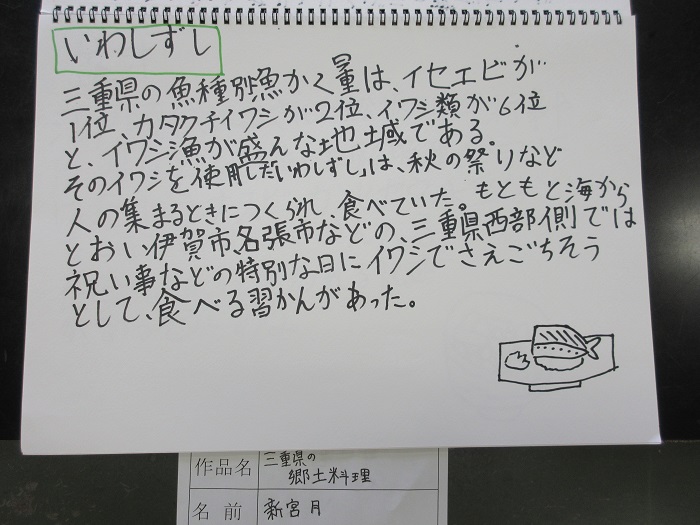 いわしずし
三重県の魚種別漁かく量は、イセエビが
1位、カタクチイワシが2位、イワシ類が6位
と、イワシ漁が盛んな地域である。
そのイワシを使用した「いわしずし」は、秋の祭りなど
人の集まるときにつくられ、食べていた。もともと海から
とおい伊賀市、名張市などの、三重県西部側では
祝い事などの特別な日にイワシでさえごちそう
として、食べる習かんがあった。
作品名 三重県の
郷土料理
名前 新宮月